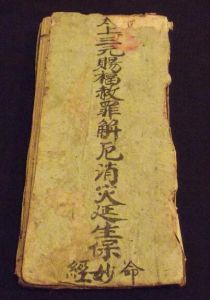 太上三元賜福赦罪解厄消災延生保
命妙經